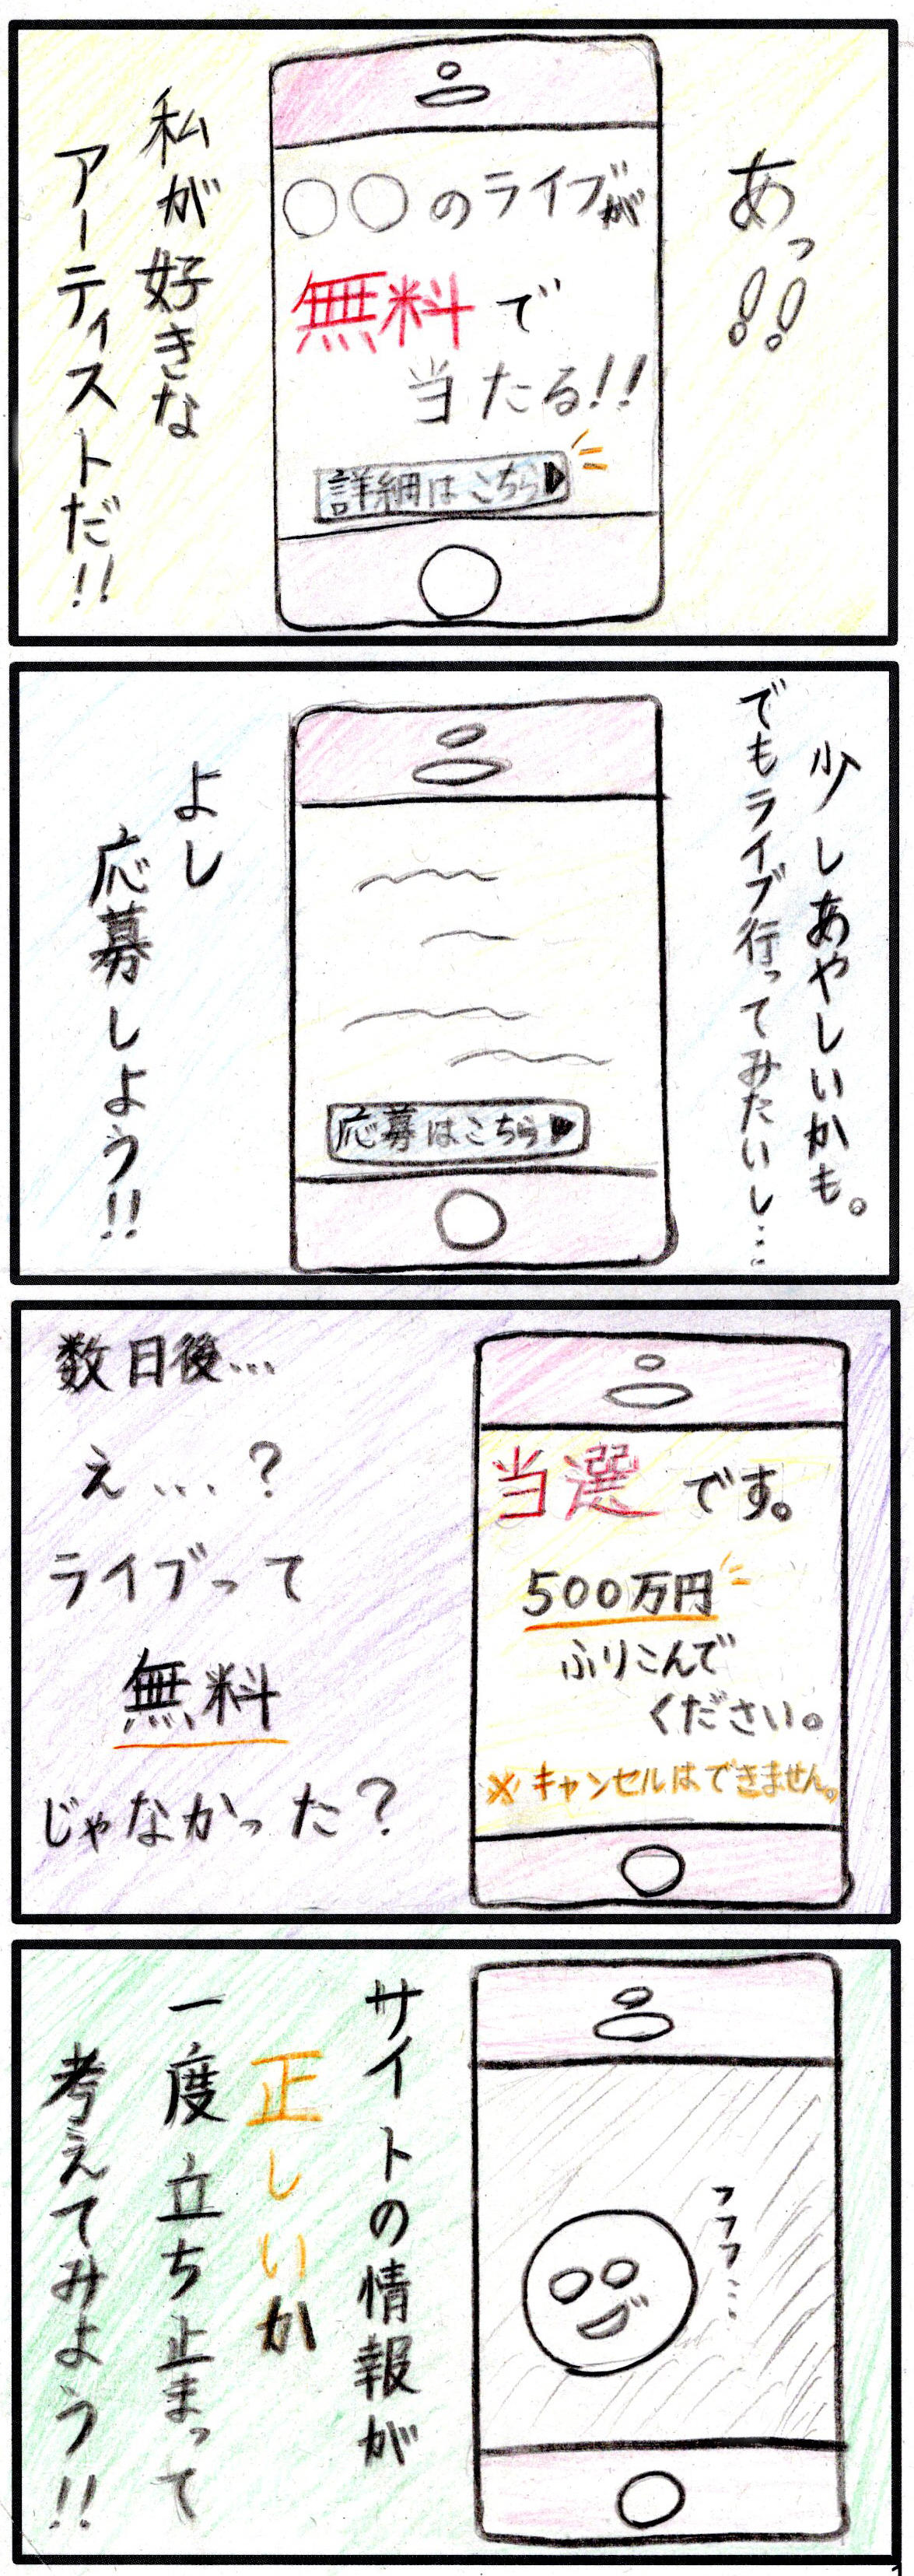 あっ!!
〇〇のライブが
無料で
当たる!!
詳細はこちら▶
私が好きな
アーティストだ!!
少しあやしいかも。
でもライブ行ってみたいし…
応募はこちら▶
よし
応募しよう!!
数日後…
え…?
ライブって
無料
じゃなかった?
当選です。
500万円
ふりこんで
ください。
※キャンセルはできません。
フフフ…
サイトの情報が
正しいか
一度立ち止まって
考えてみよう!!
1